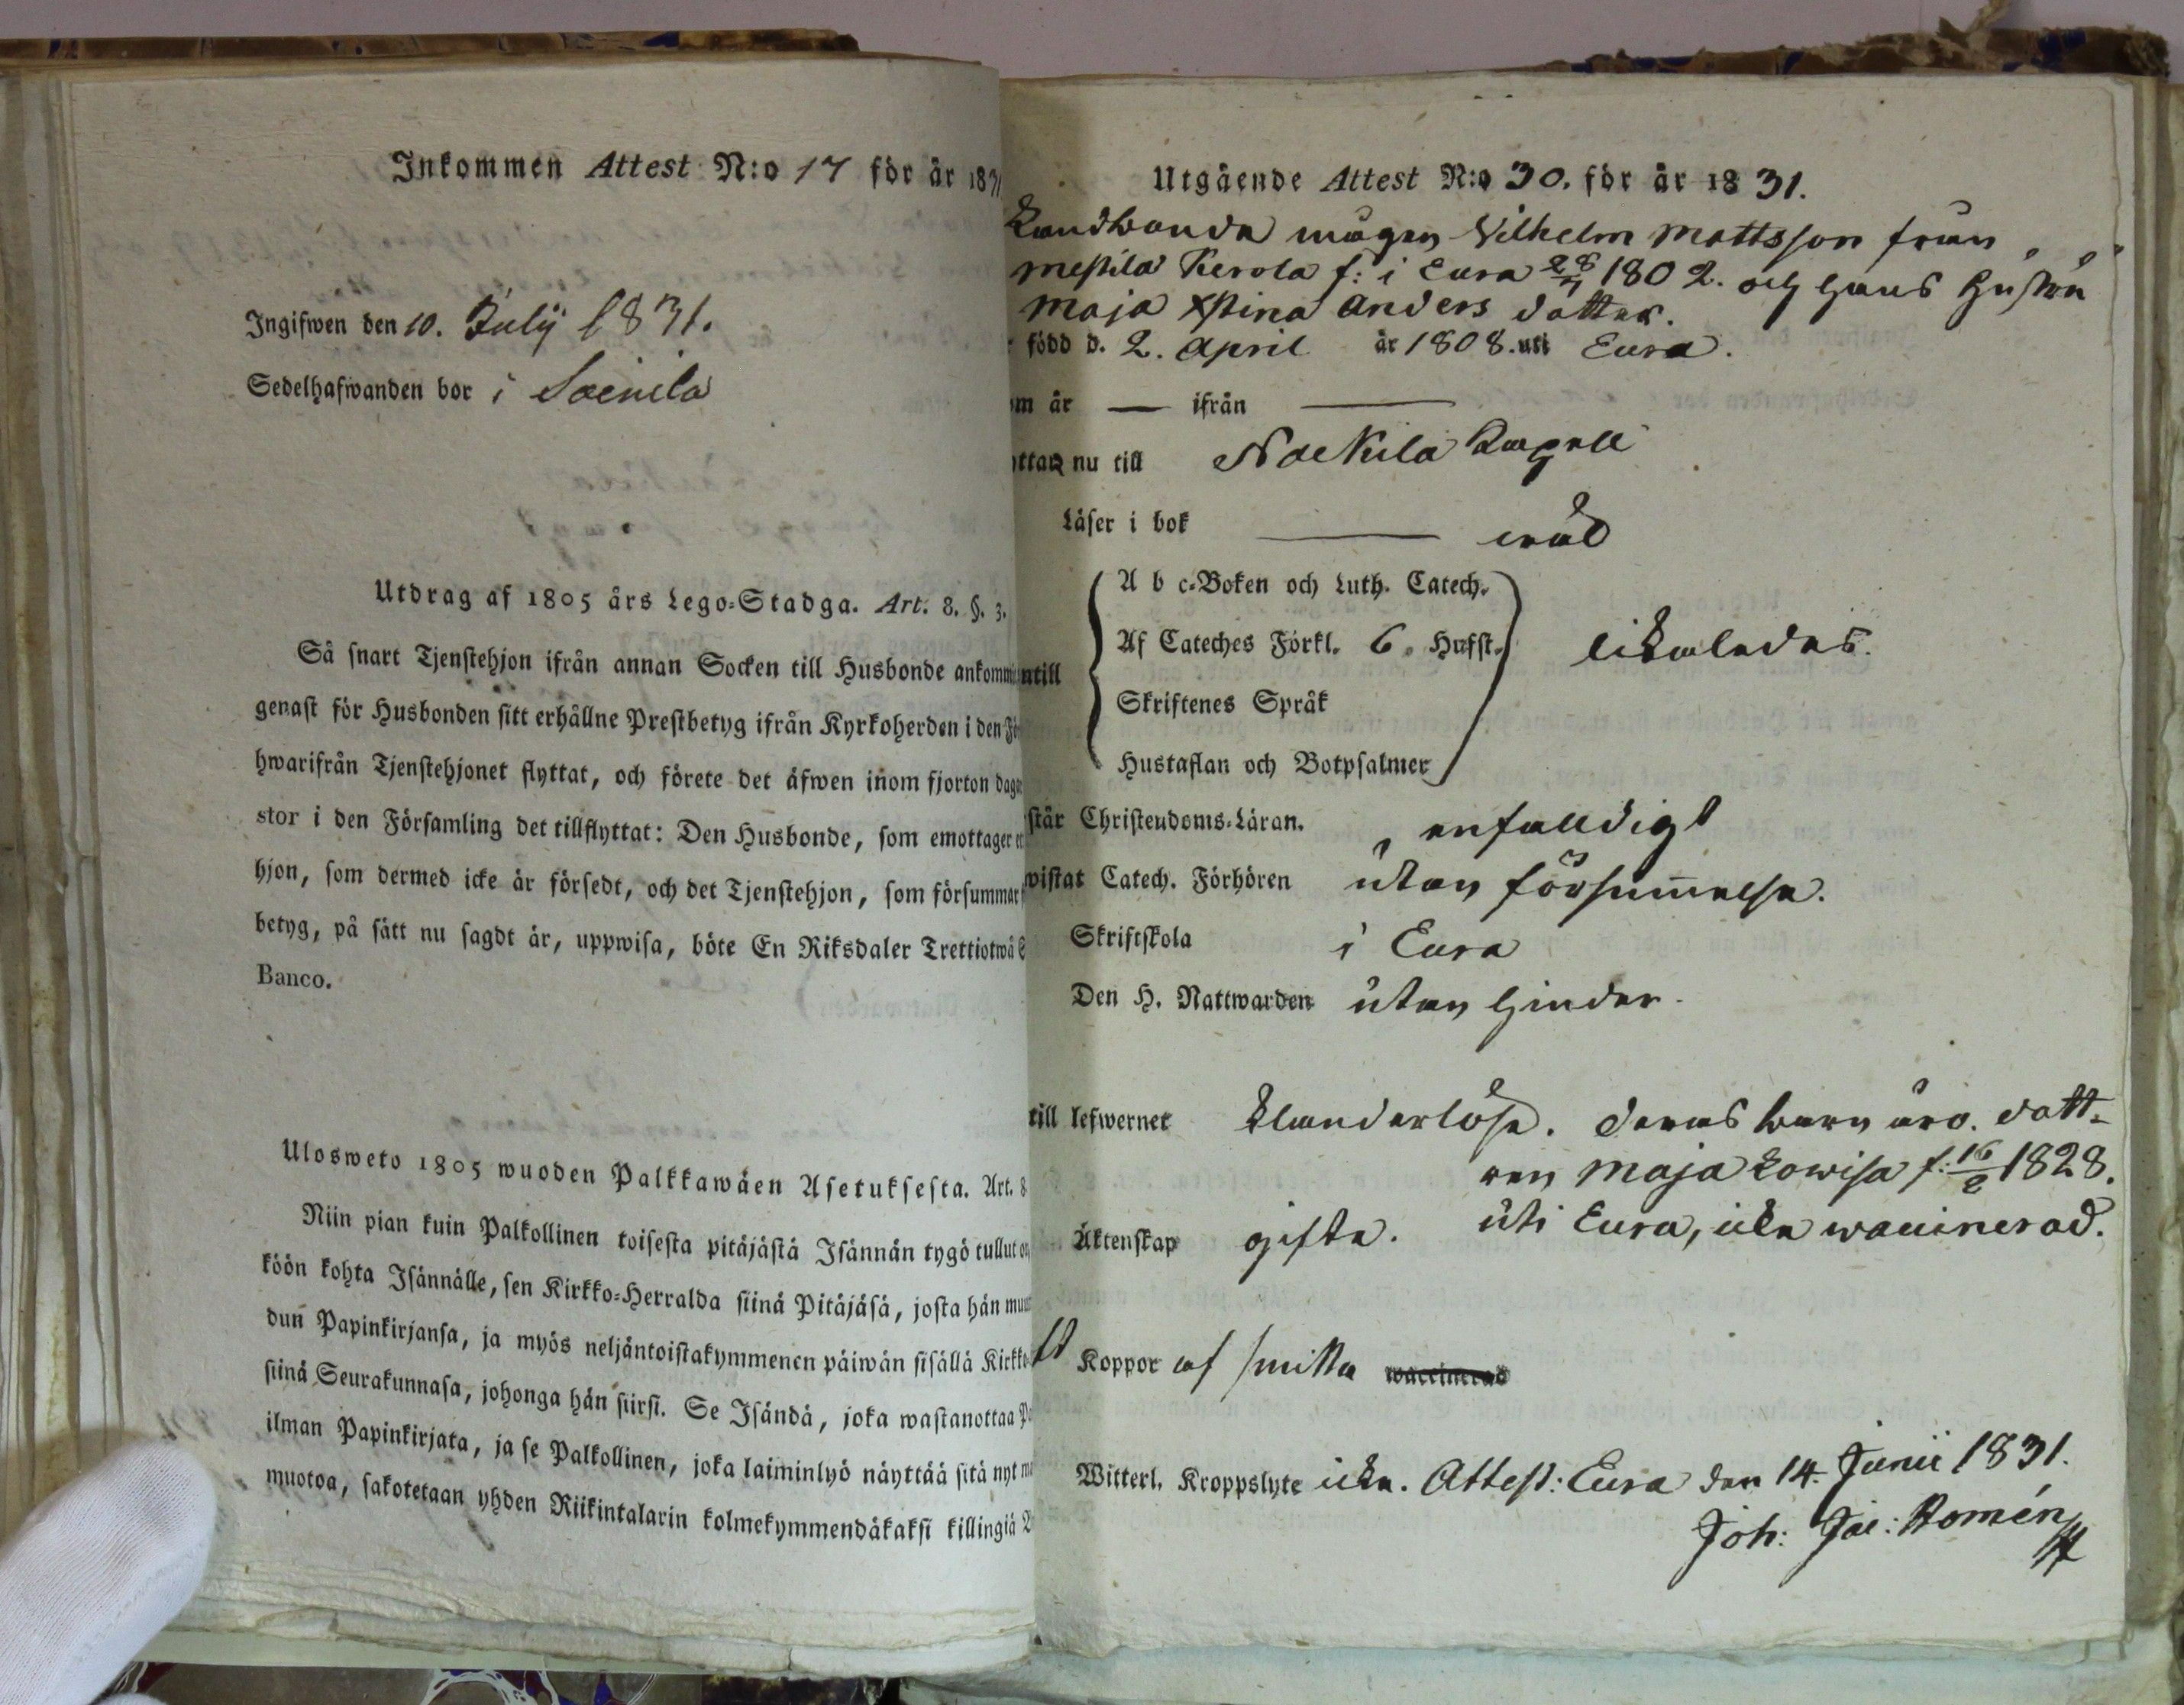 Inkommen Attest N:o 17 för år 1831
Ingifwen den 10. Julij 1831.
Sedelhafwanden bor i Soinila
Utdrag af 1805 års Lego-Stadga. Art. 8. §. 3.
Så snart Tjenstehjon ifrån annan Socken till Husbonde ankomm
genast för Husbonden sitt erhållne Prestbetyg ifrån Kyrkoherden i den Fö
hwarifrån Tjenstehjonet flyttat, och förete det äfwen inom fjorton dagar
stor i den Församling det tillflyttat: Den Husbonde, som emottager et
hjon, som dermed icke är försedt, och det Tjenstehjon, som försummar
betyg, på sätt nu sagdt är, uppwisa, böte En Riksdaler Trettiotwå S
Banco.
Ulosweto 1805 wuoden Palkkawäen Asetuksesta. Art. 8
Niin pian kuin Palkollinen toisesta pitäjästä Isännän tygö tullut on
köön kohta Isännälle, sen Kirkko-Herralda siinä Pitäjäsä, josta hän muut
dun Papinkirjansa, ja myös neljäntoistakymmenen päiwän sisällä Kirkko-
siinä Seurakunnasa, johonga hän siirsi. Se Isändä, joka wastanottaa Pa
ilman Papinkirjata, ja se Palkollinen, joka laiminlyö näyttää sitä nyt ma
muotoa, sakotetaan yhden Riikintalarin kolmekymmendäkaksi killingiä
Utgående Attest N:o 30. för år 1831.
Landbonde mågen Vilhelm Mattsson från
Mestilä Kerola f: i Eura 28/7 1802. och hans hustru
Maja Xstina Anders dotter.
född d. 2. April år 1808. uti Eura.
om år — ifrån —
ttar nu till Noekila Capell
Läser i bok — wäl
ntill
A b c-Boken och Luth. Catech.
Af Cateches Förkl. 6. Hufst.
Skriftenes Språk
Hustaflan och Botpsalmer
likaledes.
står Christendoms-Läran. enfalldigt
wistat Catech. Förhören utan försummelse.
Skriftskola i Eura
Den H. Nattwarden utan hinder.
till lefwernet klanderlöse. Deras barn äro. dott-
ren Maja Lowisa f: 16/2 1828.
Äktenskap gifte. uti Eura, icke waccinerad.
ft Koppor af smitta waccinerad
Witterl. Kroppslyte icke. Attest: Eura den 14. Junii 1831.
Joh: Jac: Romén